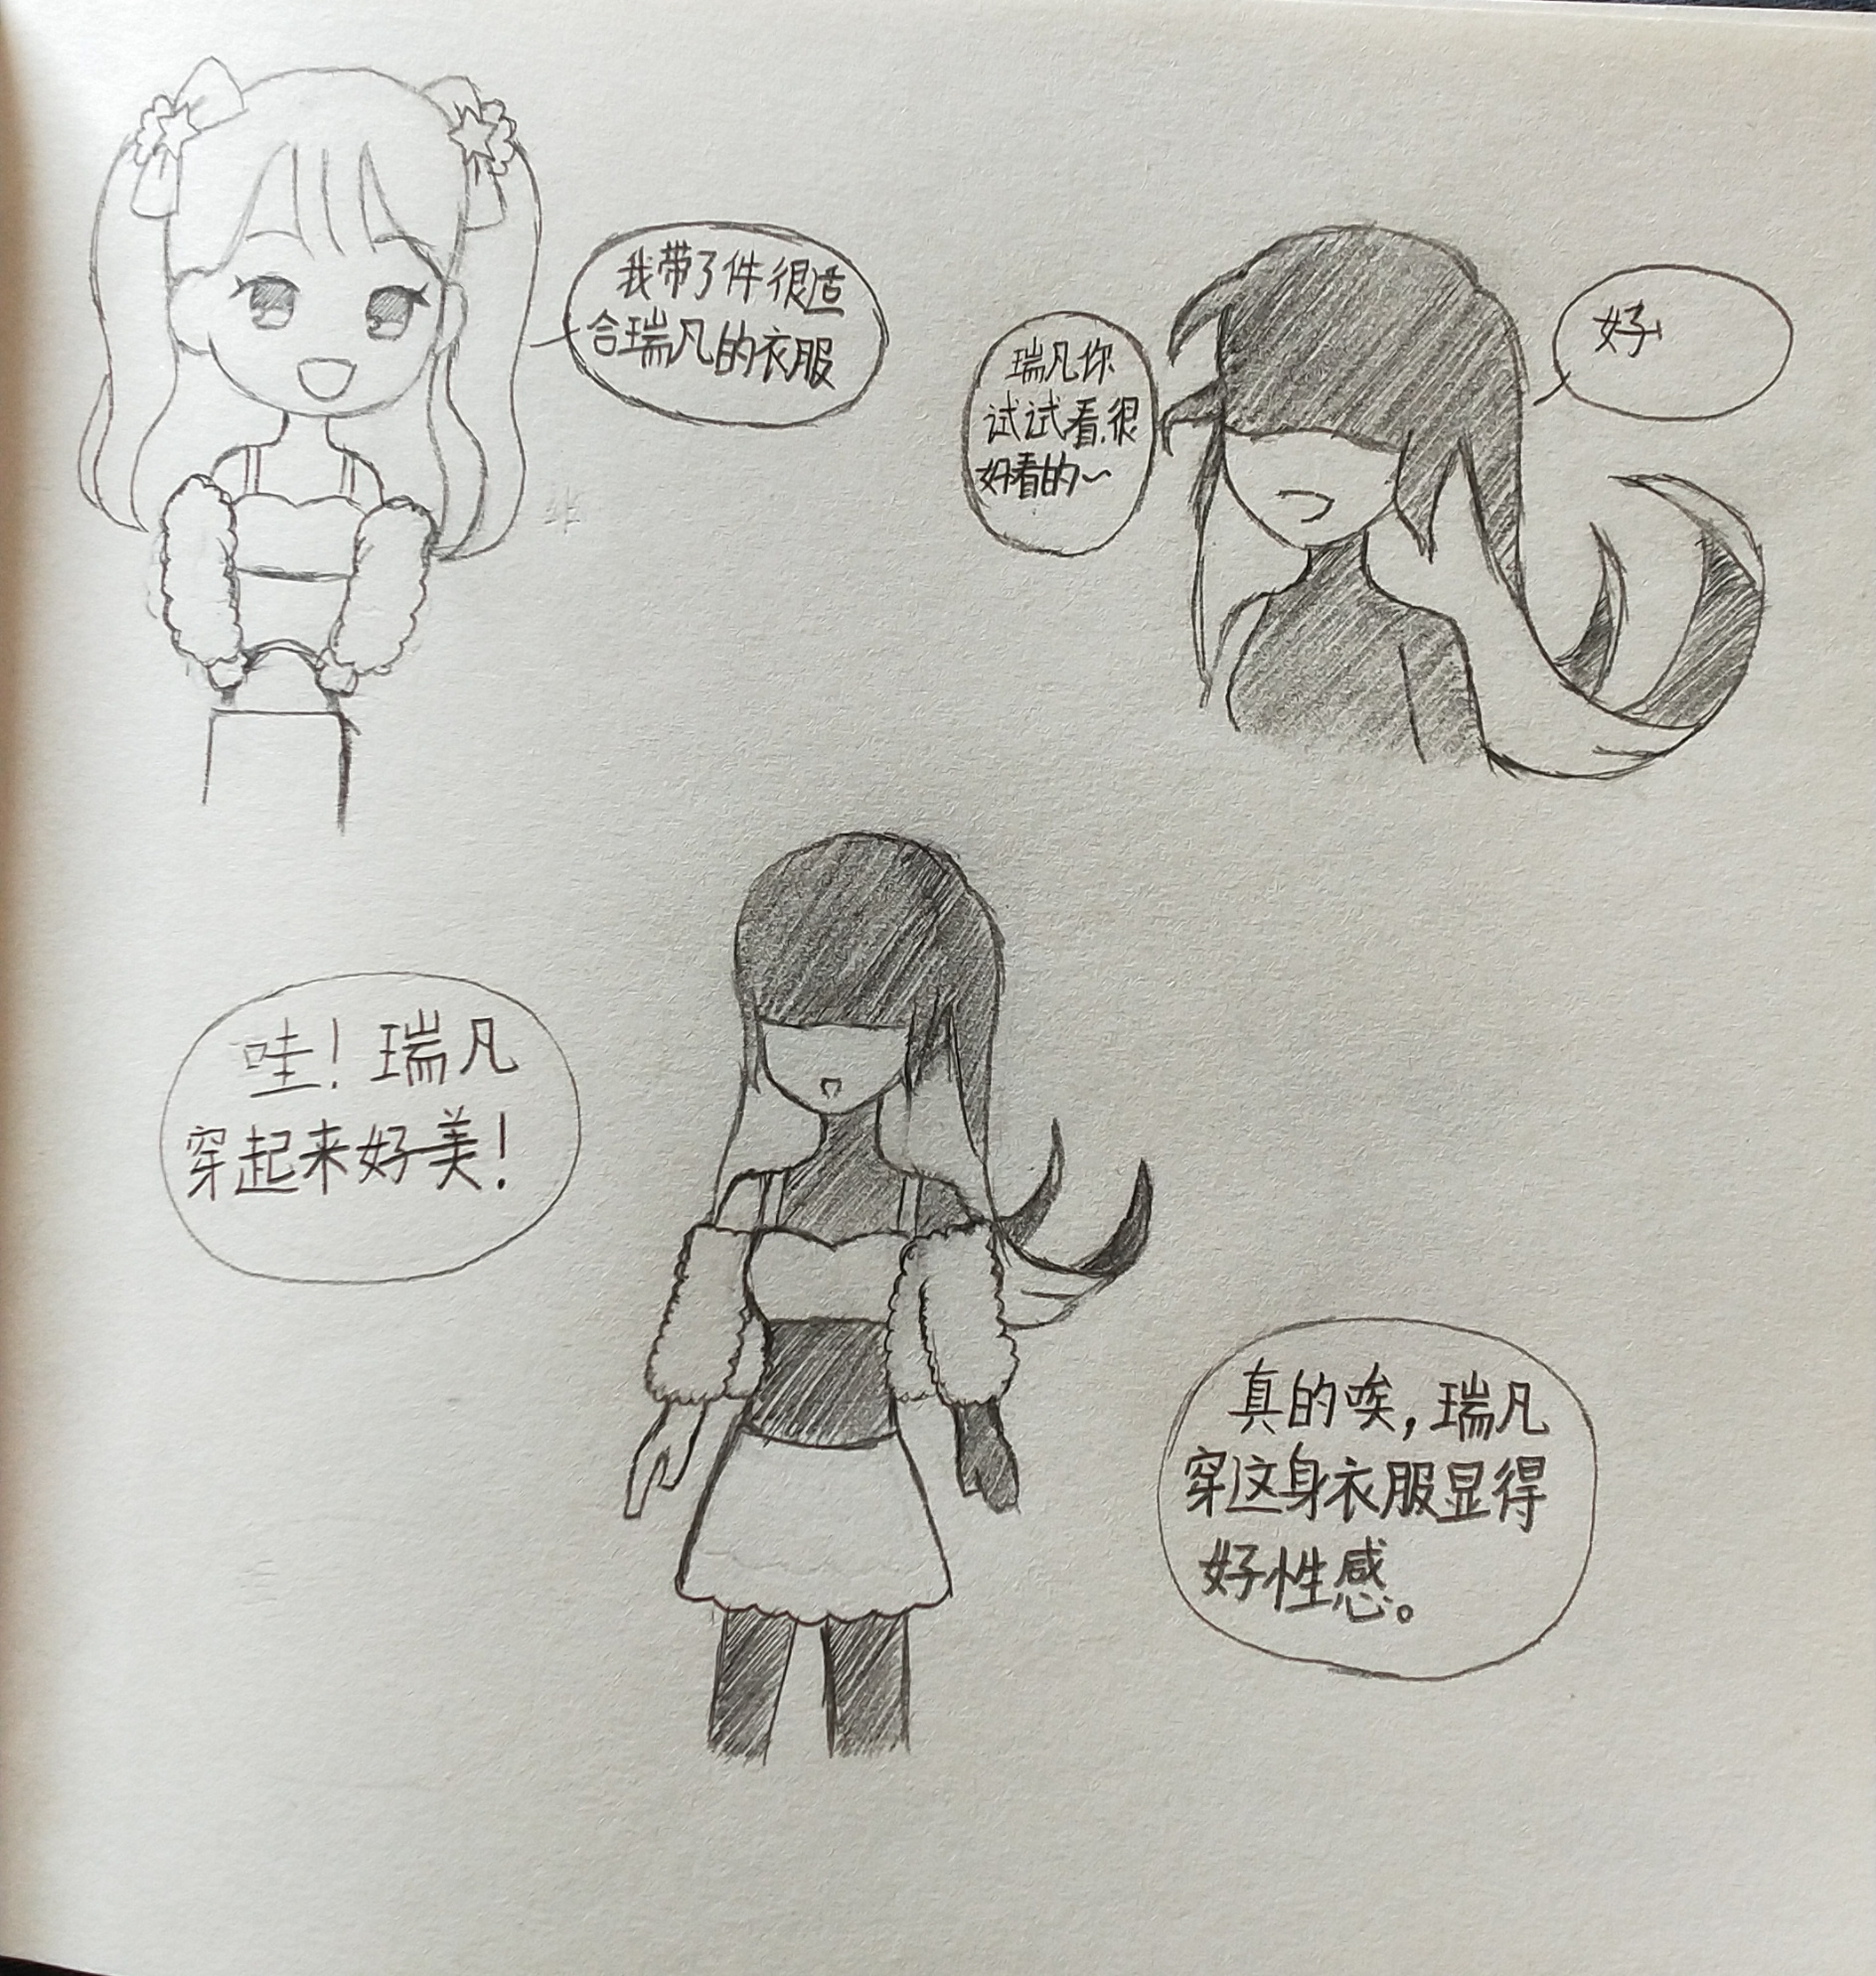 我带了件很适
合瑞凡的衣服
瑞凡你
试试看,很
好看的~
好
哇!瑞凡
穿起来好美!
真的唉,瑞凡
穿这身衣服显得
好性感。